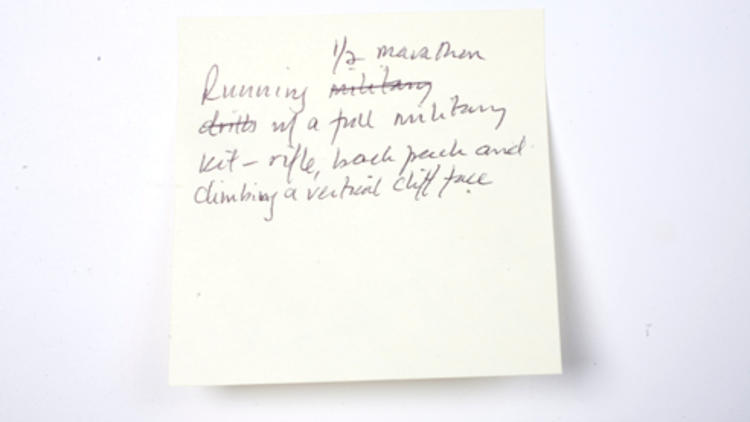 1/2 marathon
Running military
drills w/ a full military
kit – rifle, back pack and
climbing a vertical cliff face